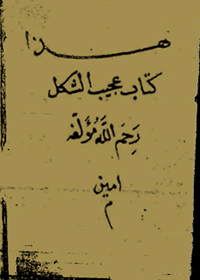 هذا
كتاب عجيب الشكل
رحم الله مؤلفه
امين
م